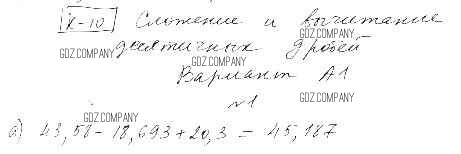 К-10 Сложение и вычитание
GDZ.COMPANY
десятичных дробей
GDZ.COMPANY
GDZ.COMPANY
Вариант А1
GDZ.COMPANY
№1
GDZ.COMPANY
а) 43,58 - 18,693 + 20,3 = 45,187